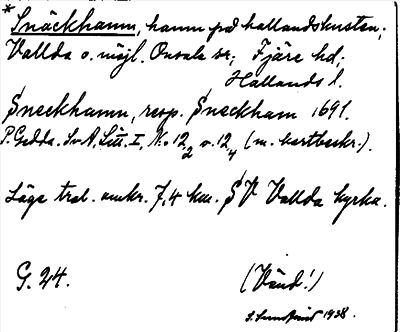 * Snäckhamn, hamn på hallandskusten;
Vallda o. möjl. Onsala sr; Fjäre hd;
Hallands l.
Sneckhamn, resp. Sneckham 1691.
P. Gedda. SvA. Litt. I, No 12,2 o. 12,4 (m. kartbeskr.).
Läge trol. omkr. 7,4 km. SV Vallda kyrka.
G. 24. (Vänd!)
1938.